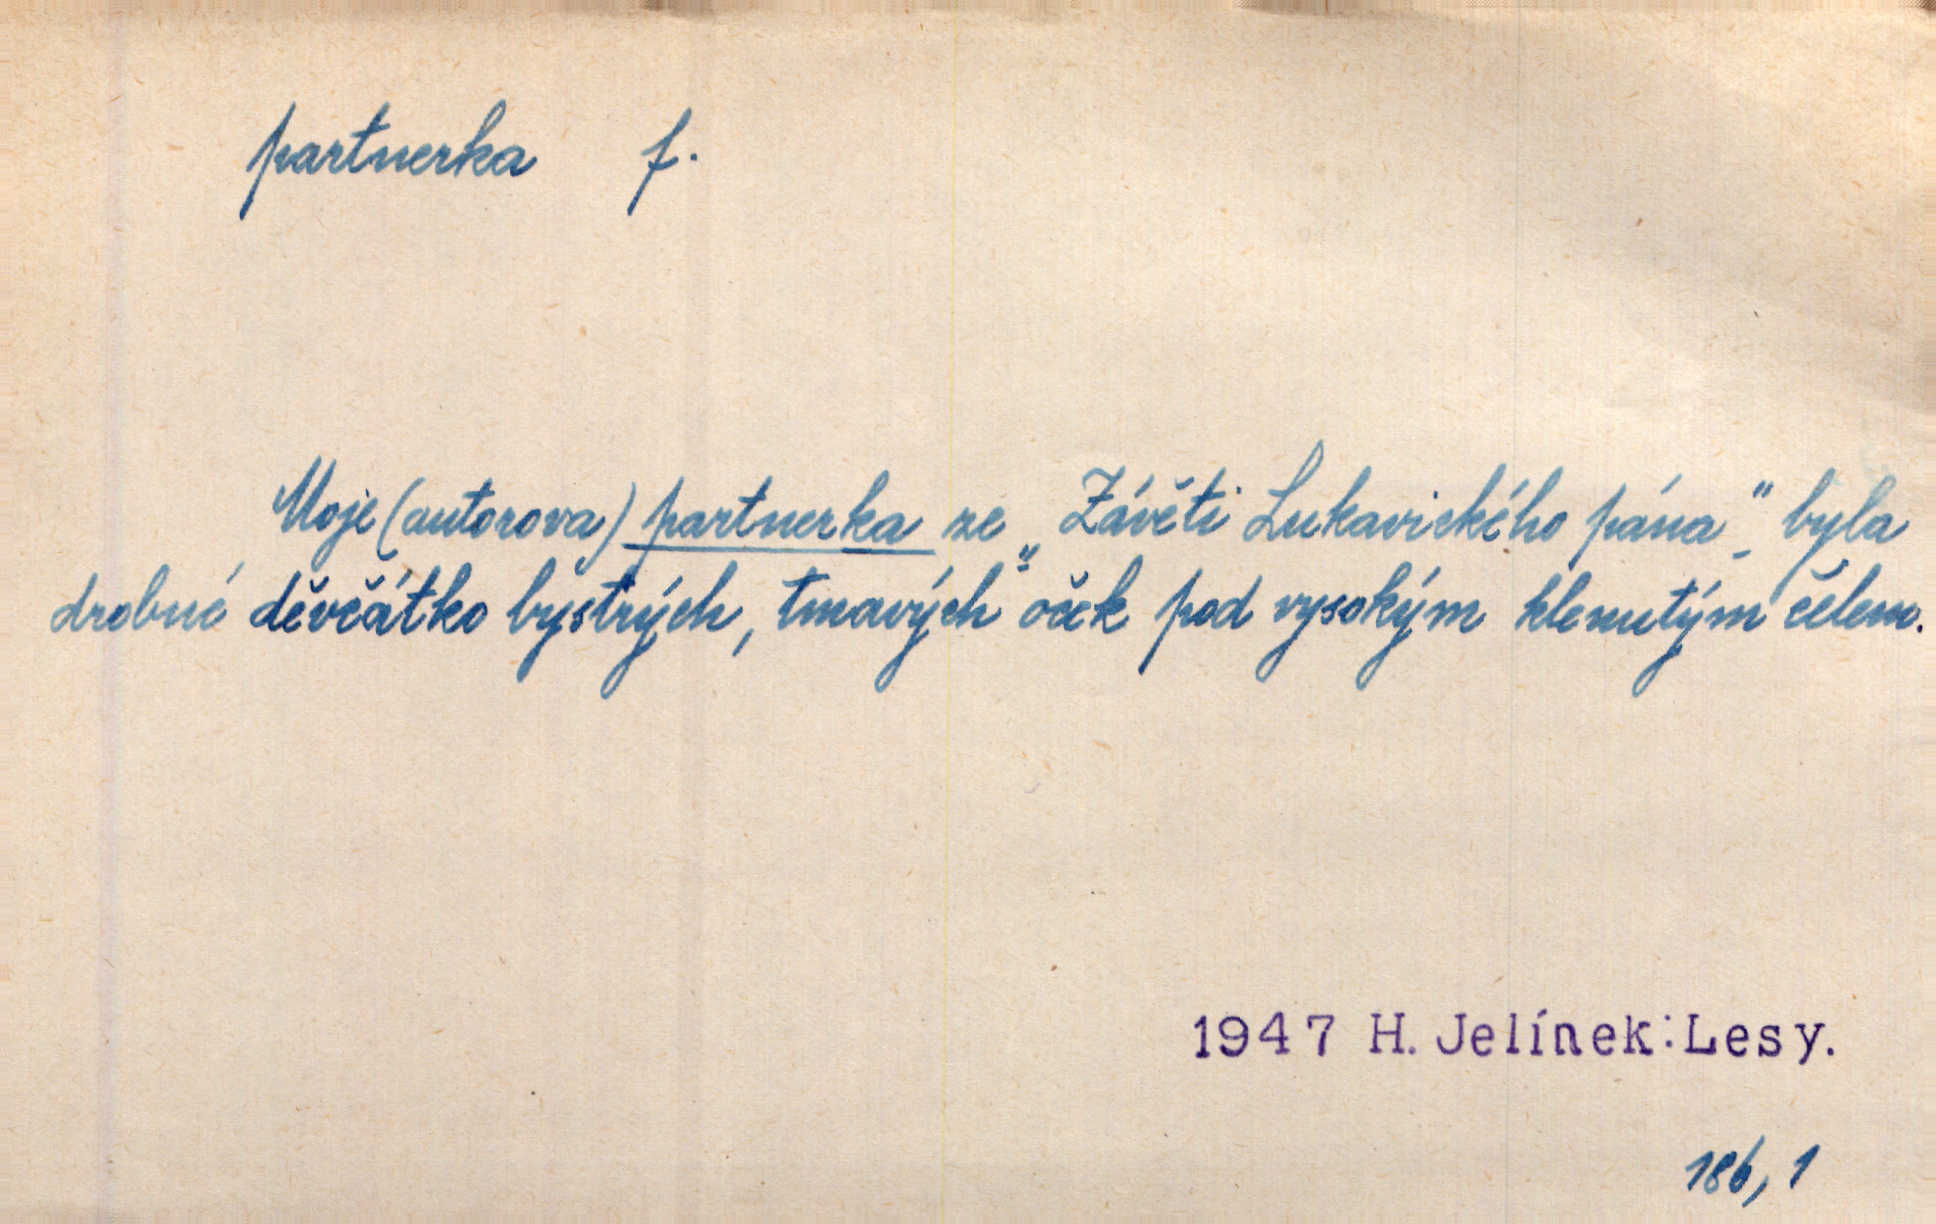 partnerka f.
Moje (autorova) partnerka ze „Závěti Lukavického pána" byla
drobné děvčátko bystrých, tmavých oček pod vysokým klenutým čelem.
1947 H. Jelínek: Lesy.
186,1